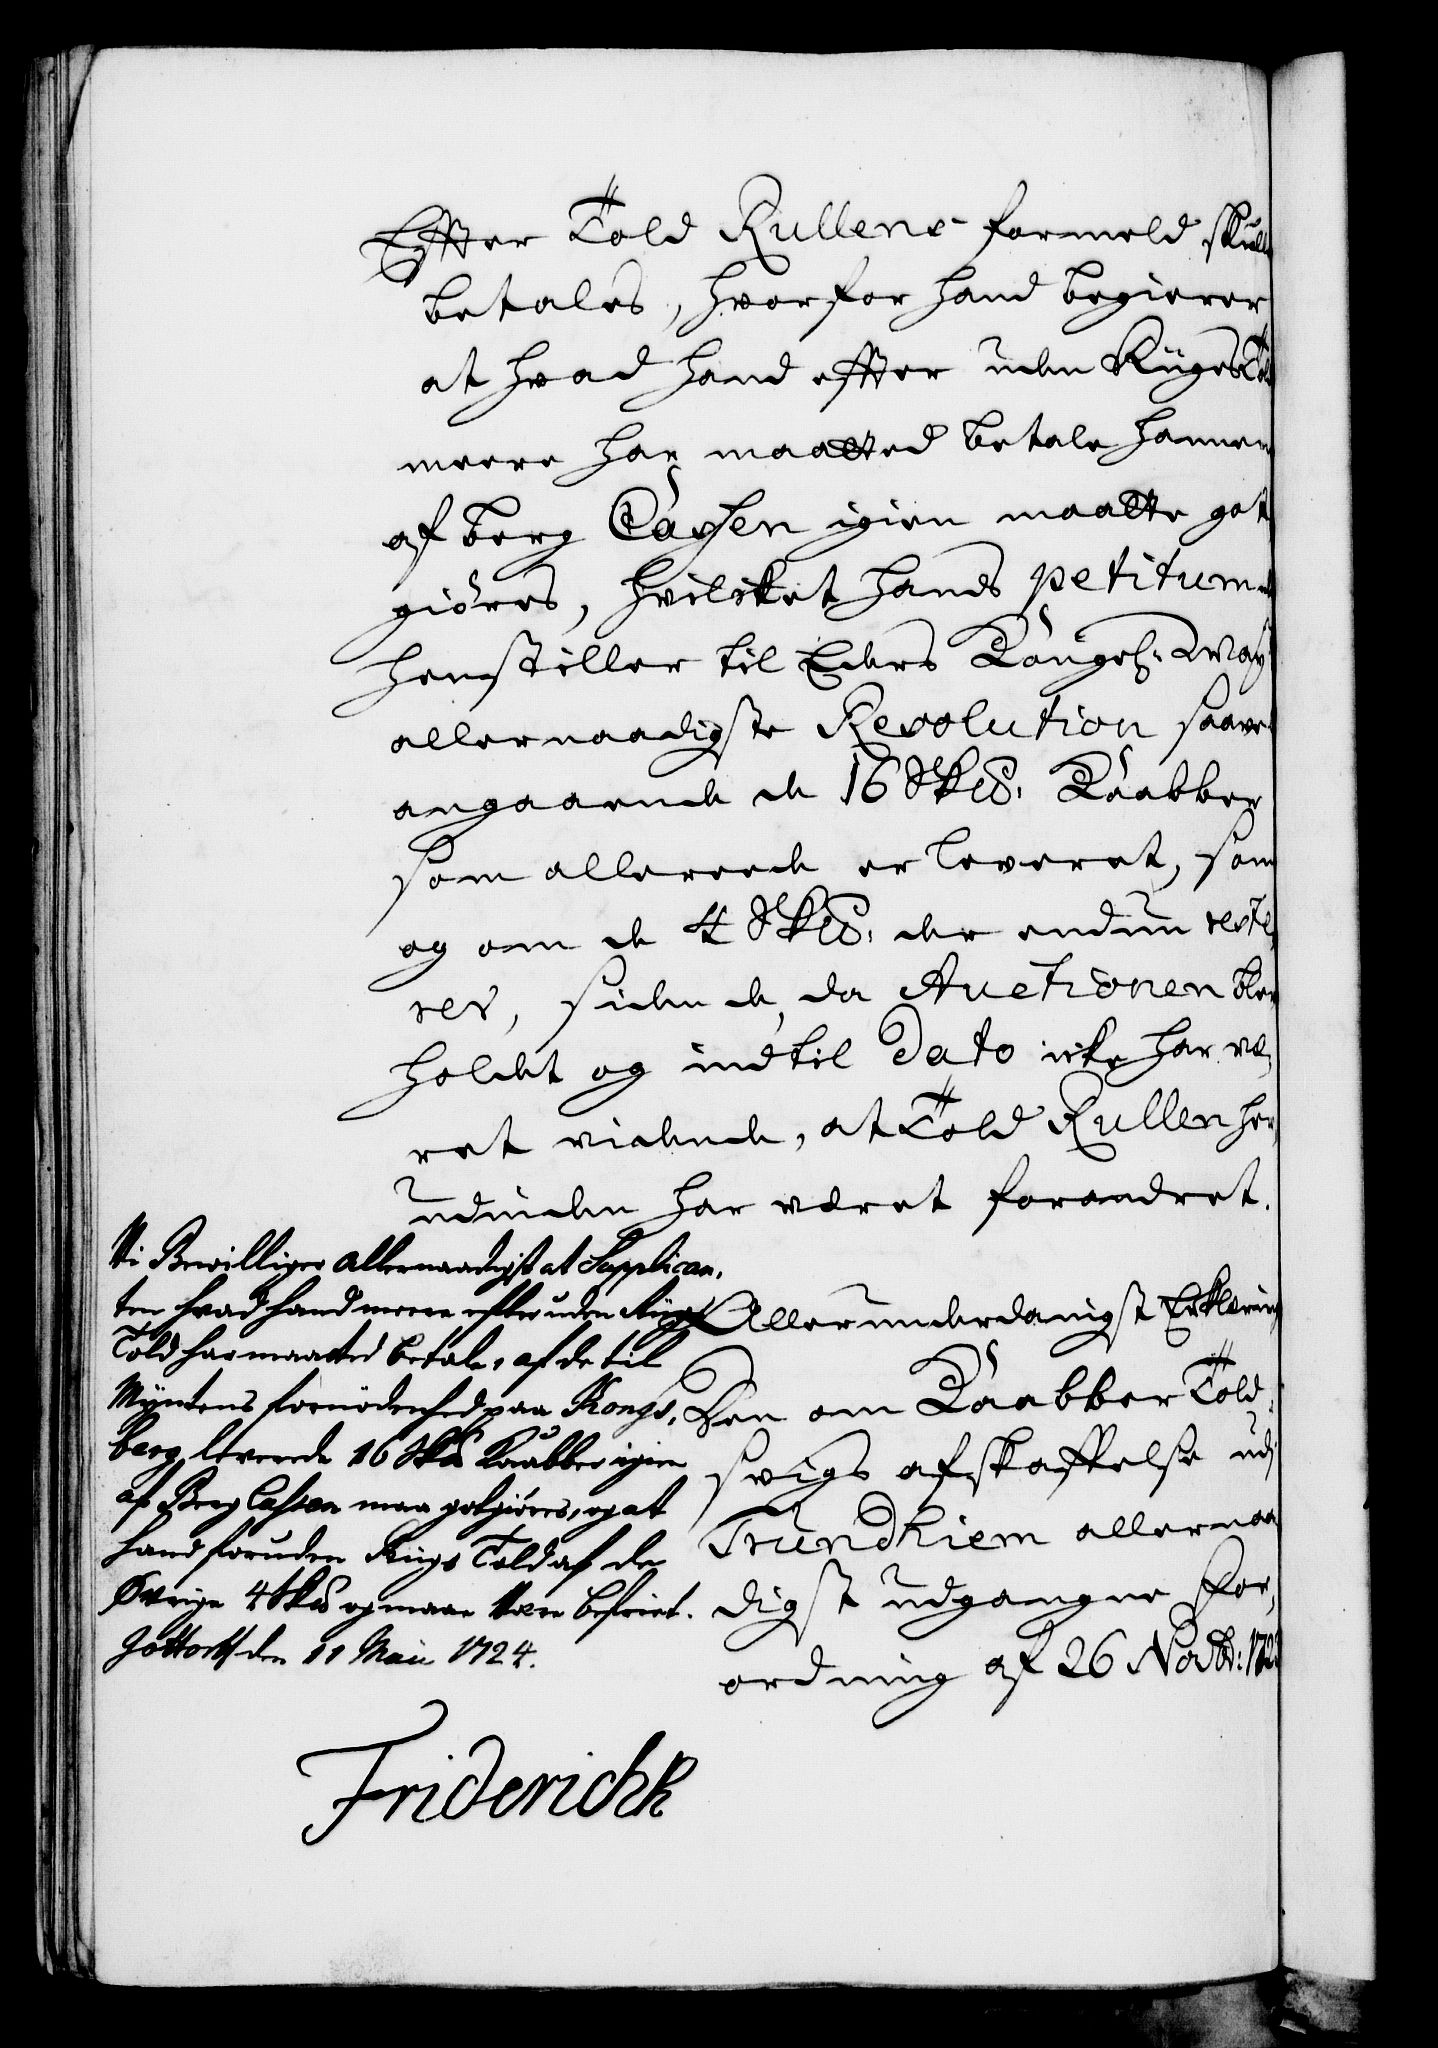 Effter Told Rullens formeld skulle
betales, hvorfor hand begierer
at hvad hand effter uden Riigs Told
meere har maatted betale hannem
af berg Cassen igien maatte got
giöres, hvilcket hands petitum
henstiller til Eders Kongel: May
allernaadigste Resolution saavel
angaaende de 16 Sk℔: Kaabber
som allereede er leveret, som
og om de 4 Sk℔: der endnu reste,
rer, siden de, da Auctionen blev
holdet og indtil Dato icke har væ,
ret vidende, at Told Rullen her,
udinden har været forandret.
Vi Bewilliger allernaadigst at Supplican,
ten hvad hand meere efter uden Riigs
Told har maatted betale, af de til
Myntens fornödenhed paa Kongs,
berg leverede 16 Sk℔ Kaabber igien
af Berg Cassen maa gotgiöres, og at
hand foruden Riigs Told af de
Øvrige 4 Sk℔ og maae være befriet.
Gottorff den 11 Maii 1724.
Friderichk
Allerunderdanigst Erklæring
Den om Kaabber Told,
svigs afskaffelse udi
Trundhiem allernaa
digst udgangne For,
ordning af 26 Novb: 1723